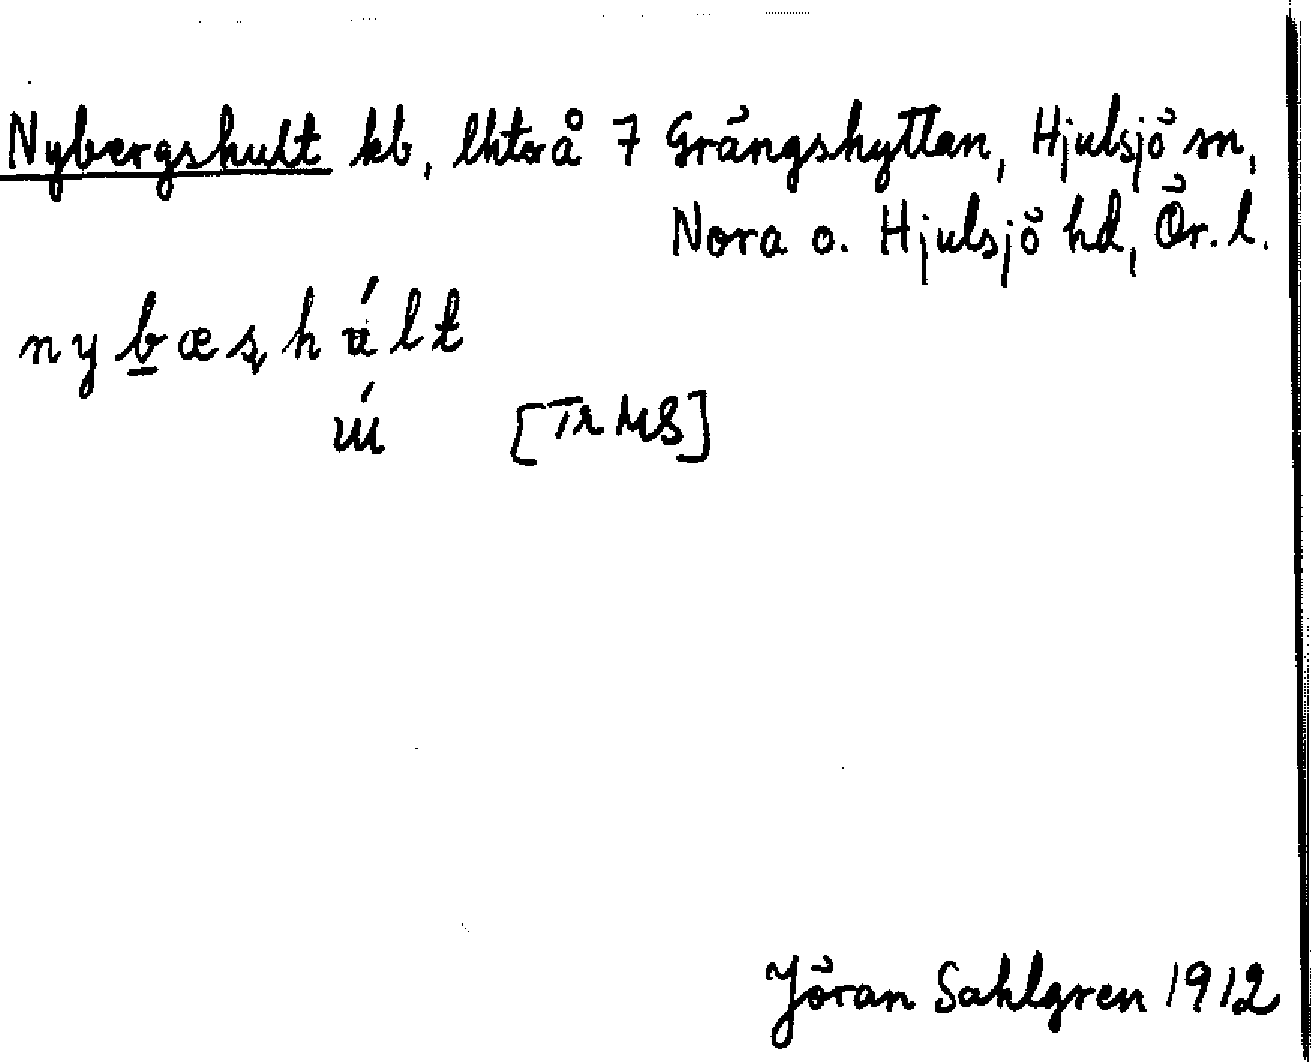 Nybergshult kb, lhtrå 7 Grängshyttan, Hjulsjö sn,
Nora o. Hjulsjö hd, Ör. l.
nybæʂhúlt
ɯ́ [Tr MS]
Jöran Sahlgren 1912